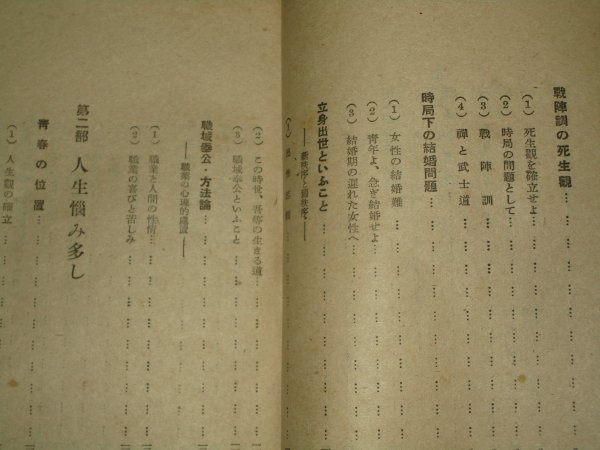 戰陣訓の死生觀………
(1) 死生觀を確立せよ………
(2) 時局の問題として………
(3) 戰陣訓………
(4) 禪と武士道………
時局下の結婚問題………
(1) 女性の結婚難………
(2) 青年よ、急ぎ結婚せよ………
(3) 結婚期の遲れた女性へ………
立身出世といふこと………
(2) この時世、吾等の生きる道………
(3) 職域奉公といふこと………
職域奉公・方法論………
――職業の心理的處置――
(1) 職業と人間の性情………
(2) 職業の喜びと苦しみ………
第二部 人生惱み多し
靑春の位置………
(1) 人生觀の確立